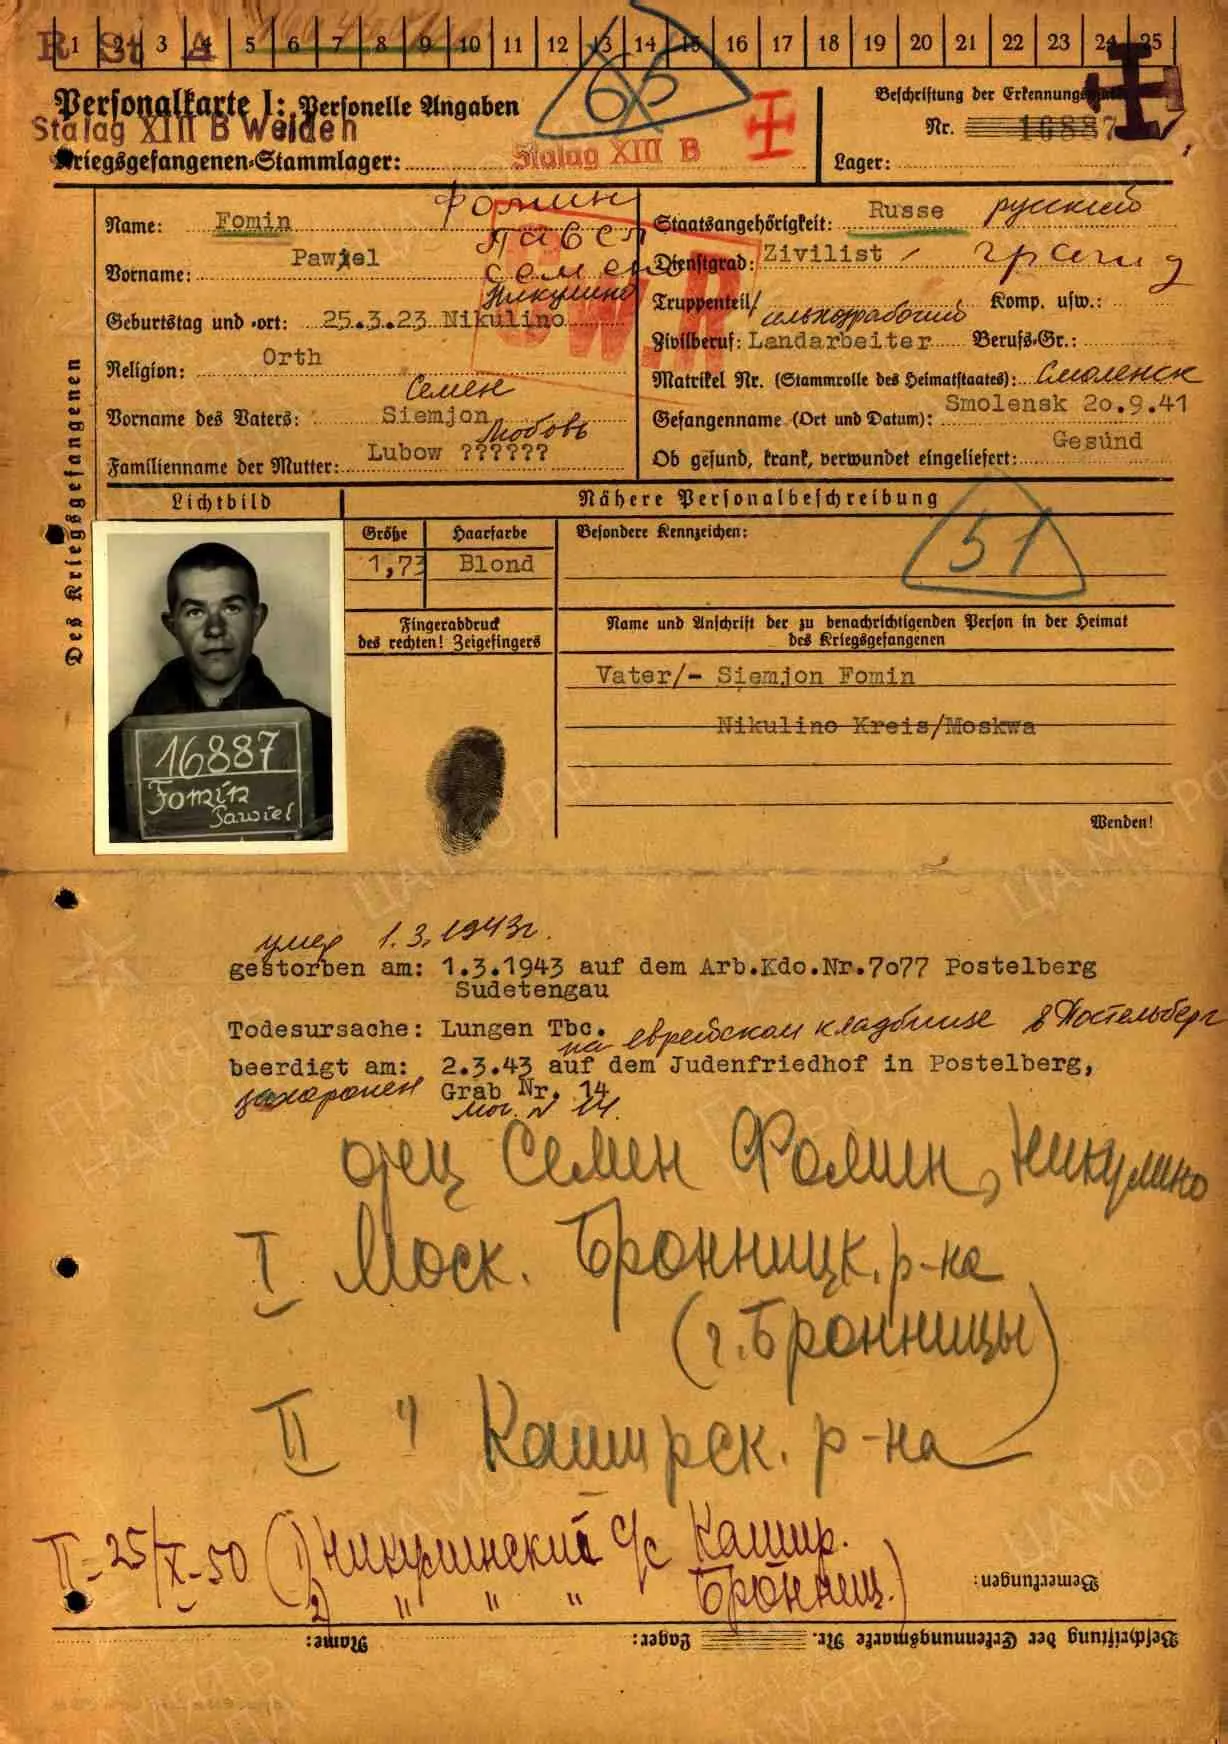 R St A
1 2 3 4 5 6 7 8 9 10 11 12 13 14 15 16 17 18 19 20 21 22 23 24 25
65
Personalkarte I: Personelle Angaben
Stalag XIII B Weiden
Kriegsgefangenen-Stammlager: Stalag XIII B
Beschriftung der Erkennungsmarke
Nr. 16887
Lager:
Des Kriegsgefangenen
Фомин
Name: Fomin
Павел
Vorname: Pawiel
Семен
Никулино
Geburtstag und -ort: 25.3.23 Nikulino
Religion: Orth
Семен
Vorname des Vaters: Siemjon
Любовь
Familienname der Mutter: Lubow ??????
Staatsangehörigkeit: Russe русский
Dienstgrad: Zivilist гражд
Truppenteil/ Komp. usw.:
сельхозрабочий
Zivilberuf: Landarbeiter Berufs-Gr.:
Matrikel Nr. (Stammrolle des Heimatstaates): Смоленск
Gefangenname (Ort und Datum): Smolensk 2o.9.41
Ob gesund, krank, verwundet eingeliefert: Gesund
Gw.R
Lichtbild
Nähere Personalbeschreibung
Größe Haarfarbe
1,73 Blond
Besondere Kennzeichen:
51
Fingerabdruck
des rechten! Zeigefingers
Name und Anschrift der zu benachrichtigenden Person in der Heimat
des Kriegsgefangenen
Vater/- Siemjon Fomin
Nikulino Kreis/Moskwa
Wenden!
16887
Fomin
Pawiel
умер 1.3.1943г.
gestorben am: 1.3.1943 auf dem Arb.Kdo.Nr.7o77 Postelberg
Sudetengau
Todesursache: Lungen Tbc.
на еврейском кладбище в Постельберг
beerdigt am: 2.3.43 auf dem Judenfriedhof in Postelberg,
захоронен Grab Nr. 14
мог. N 14.
отец Семен Фомин, Никулино
I Моск. Бронницк. р-на
(г. Бронницы)
II " Каширск. р-на
II-25/X-50 (1) Никулинский с/с Кашир.
2) " " " Бронниц.)
Bemerkungen:
Beschriftung der Erkennungsmarke Nr. Lager: Name:
ЦА МО РФ
ПАМЯТЬ
НАРОДА